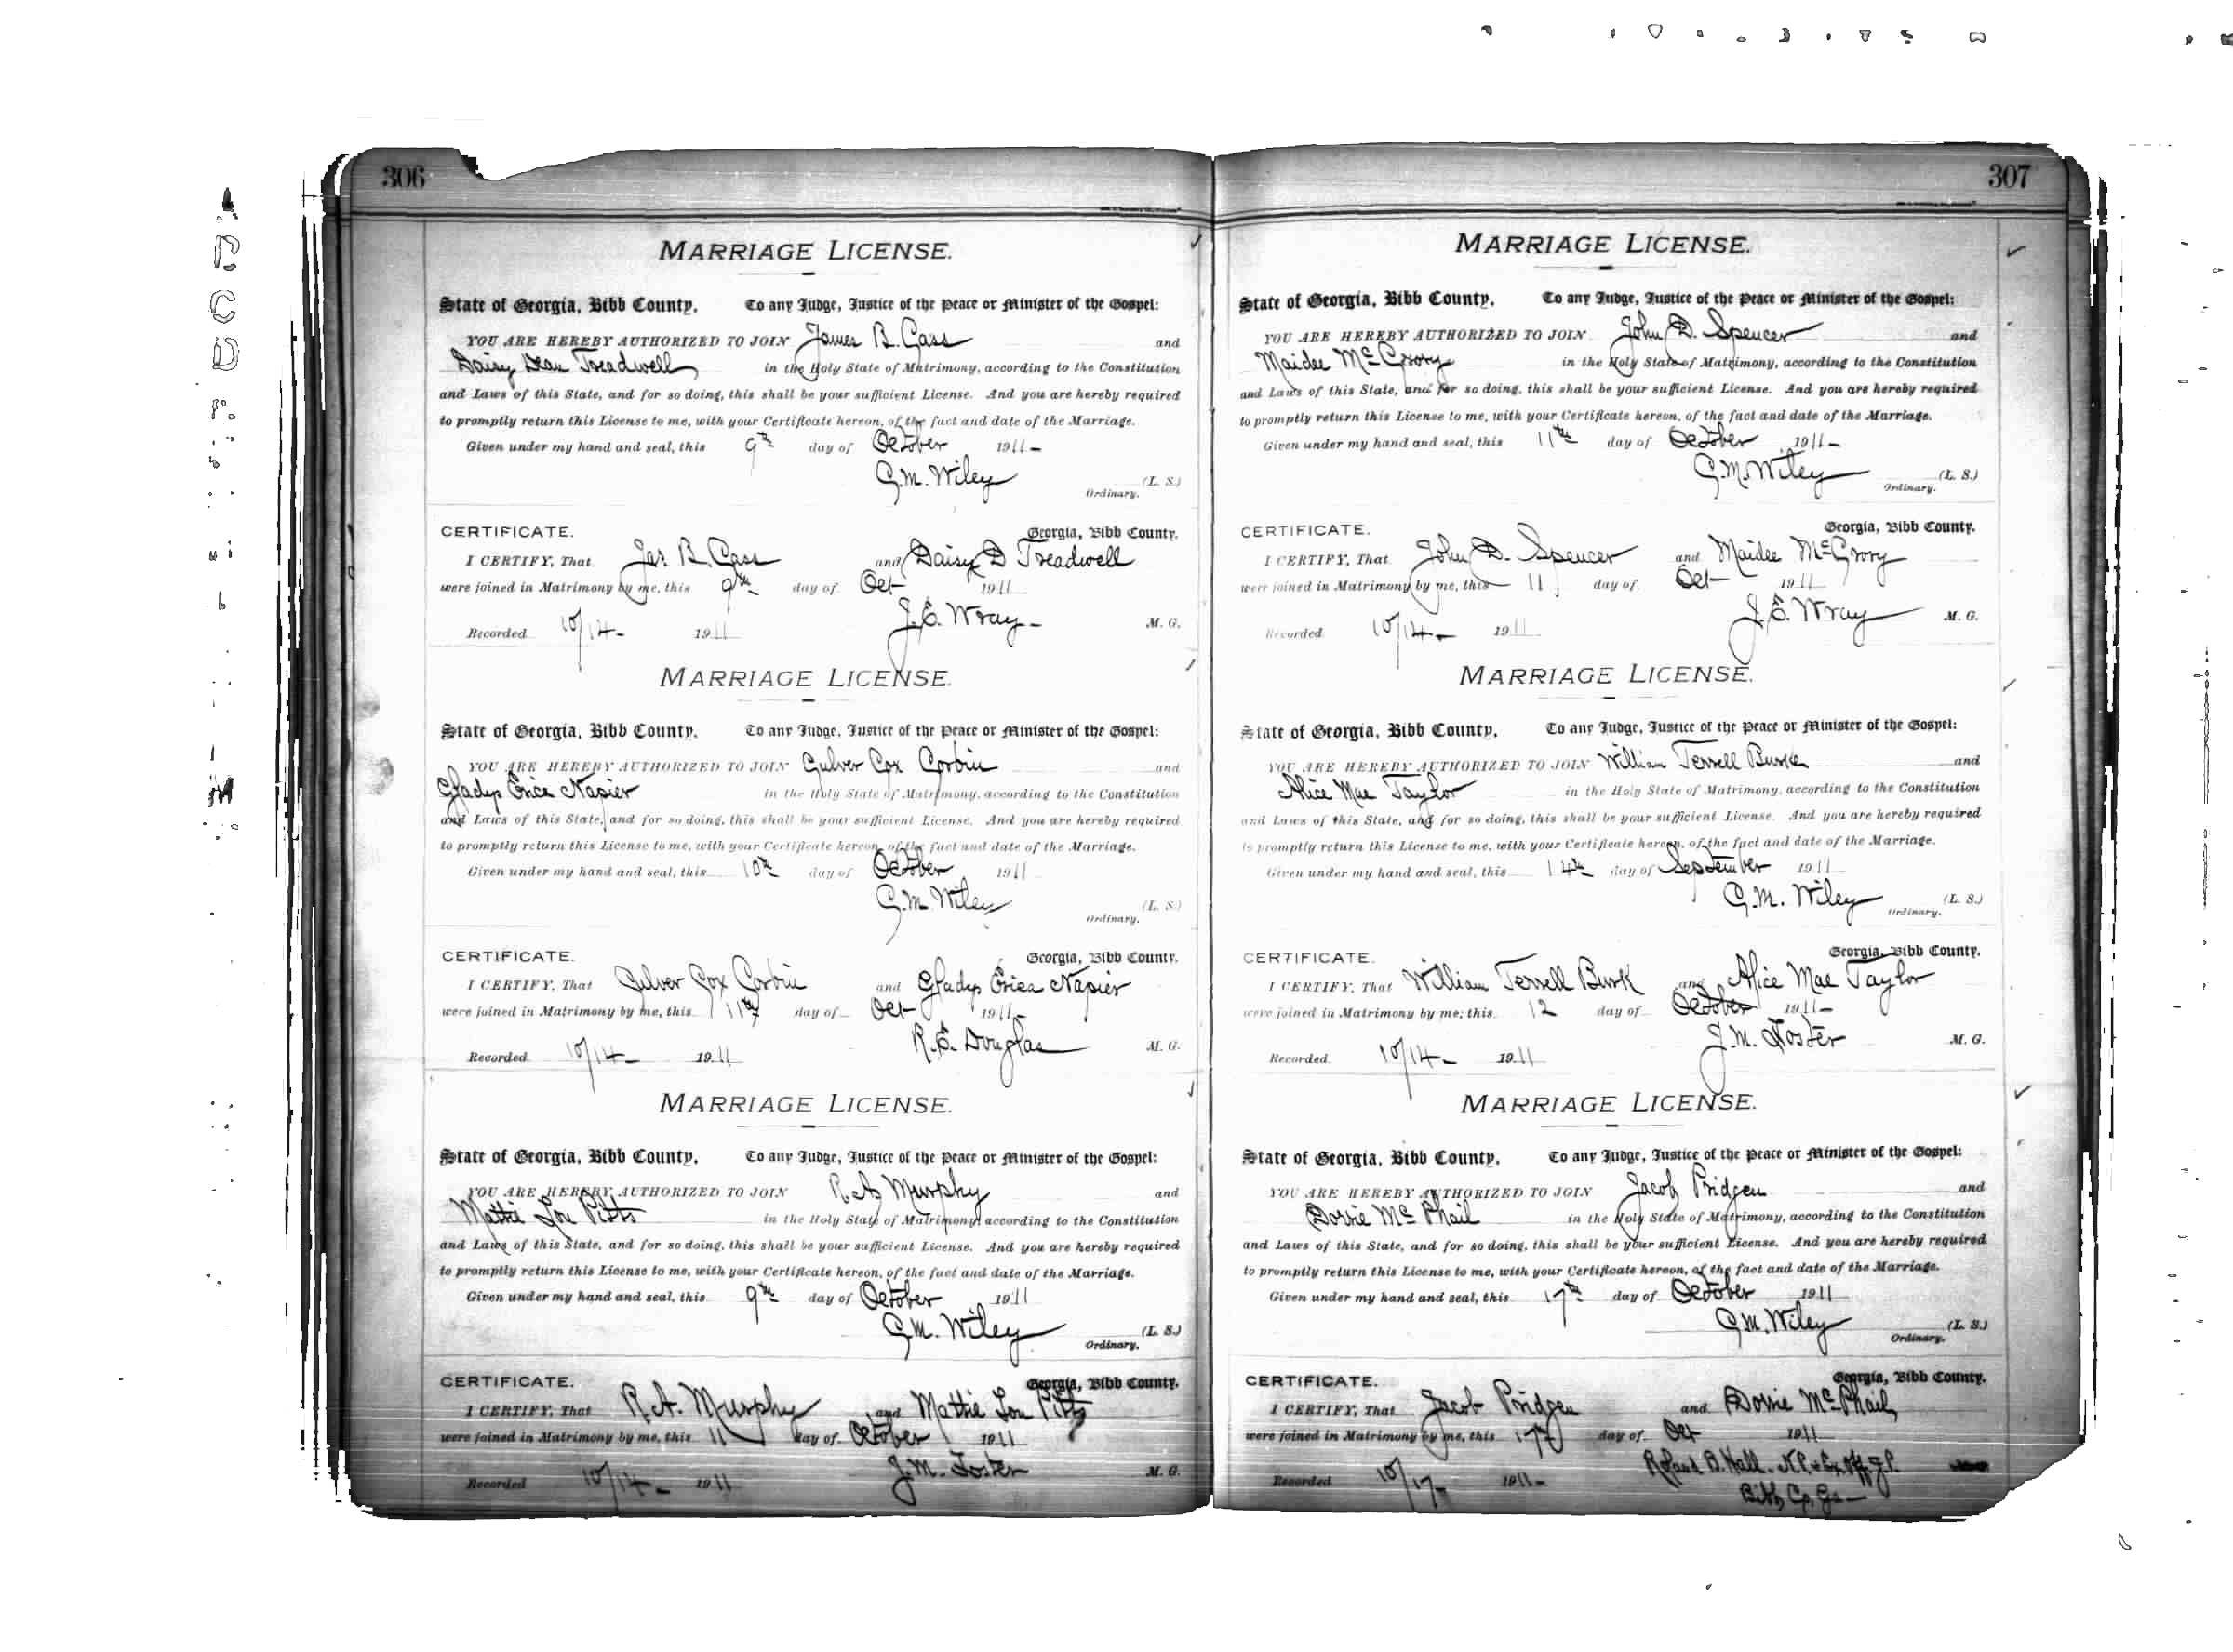 306
MARRIAGE LICENSE.
State of Georgia, Bibb County. To any Judge, Justice of the Peace or Minister of the Gospel:
YOU ARE HEREBY AUTHORIZED TO JOIN James B. Cass and
Daisy Dean Treadwell in the Holy State of Matrimony, according to the Constitution
and Laws of this State, and for so doing, this shall be your sufficient License. And you are hereby required
to promptly return this License to me, with your Certificate hereon, of the fact and date of the Marriage.
Given under my hand and seal, this 9th day of October 1911-
G.M. Wiley (L. S.)
Ordinary.
CERTIFICATE. Georgia, Bibb County.
I CERTIFY, That Jas. B. Cass and Daisy D Treadwell
were joined in Matrimony by me, this 9th day of Oct- 1911
J.E. Wray- M. G.
Recorded 10/14- 1911
MARRIAGE LICENSE.
State of Georgia, Bibb County. To any Judge, Justice of the Peace or Minister of the Gospel:
YOU ARE HEREBY AUTHORIZED TO JOIN Culver Cox Corbin and
Gladys Erica Napier in the Holy State of Matrimony, according to the Constitution
and Laws of this State, and for so doing, this shall be your sufficient License. And you are hereby required
to promptly return this License to me, with your Certificate hereon, of the fact and date of the Marriage.
Given under my hand and seal, this 10th day of October 1911
G.M. Wiley (L. S.)
Ordinary.
CERTIFICATE. Georgia, Bibb County.
I CERTIFY, That Culver Cox Corbin and Gladys Erica Napier
were joined in Matrimony by me, this 11th day of Oct- 1911-
R.E. Douglas M. G.
Recorded 10/14- 1911
MARRIAGE LICENSE.
State of Georgia, Bibb County. To any Judge, Justice of the Peace or Minister of the Gospel:
YOU ARE HEREBY AUTHORIZED TO JOIN R.A. Murphy and
Mattie Lou Pitts in the Holy State of Matrimony, according to the Constitution
and Laws of this State, and for so doing, this shall be your sufficient License. And you are hereby required
to promptly return this License to me, with your Certificate hereon, of the fact and date of the Marriage.
Given under my hand and seal, this 9th day of October 1911
G.M. Wiley (L. S.)
Ordinary.
CERTIFICATE. Georgia, Bibb County.
I CERTIFY, That R.A. Murphy and Mattie Lou Pitts
were joined in Matrimony by me, this 11 day of October 1911
J.M. Foster M. G.
Recorded 10/14- 1911
307
MARRIAGE LICENSE.
State of Georgia, Bibb County. To any Judge, Justice of the Peace or Minister of the Gospel:
YOU ARE HEREBY AUTHORIZED TO JOIN John D. Spencer and
Maidee McCrory in the Holy State of Matrimony, according to the Constitution
and Laws of this State, and for so doing, this shall be your sufficient License. And you are hereby required
to promptly return this License to me, with your Certificate hereon, of the fact and date of the Marriage.
Given under my hand and seal, this 11th day of October 1911-
G.M. Wiley (L. S.)
Ordinary.
CERTIFICATE. Georgia, Bibb County.
I CERTIFY, That John D. Spencer and Maidee McCrory
were joined in Matrimony by me, this 11 day of Oct- 1911
J.E. Wray M. G.
Recorded 10/14- 1911
MARRIAGE LICENSE.
State of Georgia, Bibb County. To any Judge, Justice of the Peace or Minister of the Gospel:
YOU ARE HEREBY AUTHORIZED TO JOIN William Terrell Burk and
Alice Mae Taylor in the Holy State of Matrimony, according to the Constitution
and Laws of this State, and for so doing, this shall be your sufficient License. And you are hereby required
to promptly return this License to me, with your Certificate hereon, of the fact and date of the Marriage.
Given under my hand and seal, this 14th day of September 1911
G.M. Wiley (L. S.)
Ordinary.
CERTIFICATE. Georgia, Bibb County.
I CERTIFY, That William Terrell Burk and Alice Mae Taylor
were joined in Matrimony by me, this 12 day of October 1911-
J.M. Foster M. G.
Recorded 10/14- 1911
MARRIAGE LICENSE.
State of Georgia, Bibb County. To any Judge, Justice of the Peace or Minister of the Gospel:
YOU ARE HEREBY AUTHORIZED TO JOIN Jacob Pridgen and
Dovie McPhail in the Holy State of Matrimony, according to the Constitution
and Laws of this State, and for so doing, this shall be your sufficient License. And you are hereby required
to promptly return this License to me, with your Certificate hereon, of the fact and date of the Marriage.
Given under my hand and seal, this 17th day of October 1911
G.M. Wiley (L. S.)
Ordinary.
CERTIFICATE. Georgia, Bibb County.
I CERTIFY, That Jacob Pridgen and Dovie McPhail
were joined in Matrimony by me, this 17 day of Oct 1911
Roland B. Hall. N.P. & Ex. Off. J.P.
Recorded 10/17- 1911-
Bibb Co, Ga-